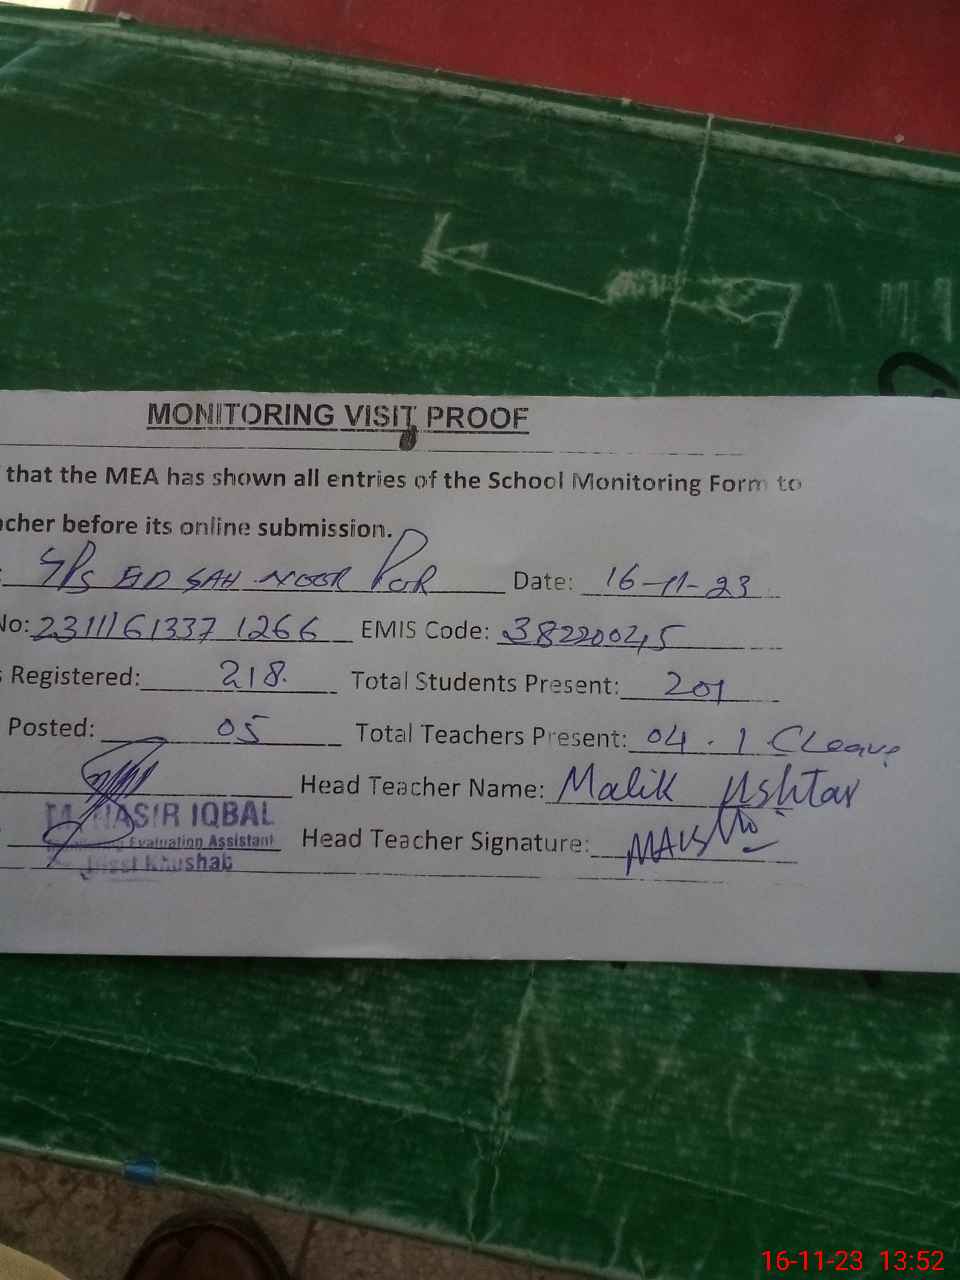 MONITORING VISIT PROOF
that the MEA has shown all entries of the School Monitoring Form to
acher before its online submission.
GPS EID SAH NOOR POR Date: 16-11-23
No: 2311161337 1266 EMIS Code: 38220045
s Registered: 218. Total Students Present: 201
Posted: 05 Total Teachers Present: 04 . 1 CLeave
Head Teacher Name: Malik
M. NASIR IQBAL
Evaluation Assistant Head Teacher Signature:
Distt Khushab
16-11-23 13:52